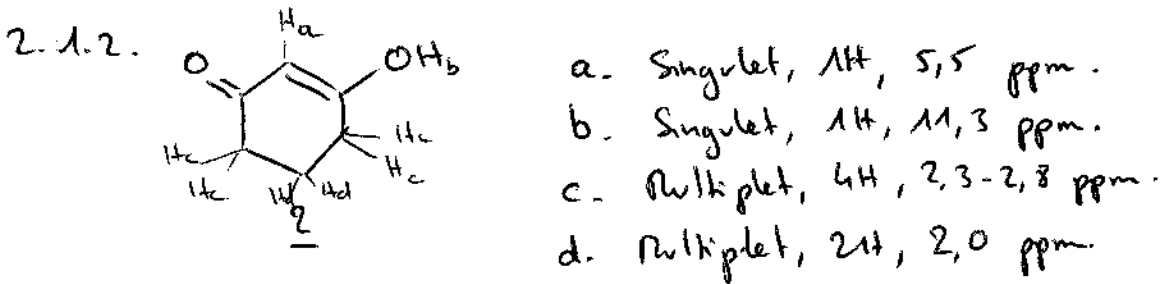 2.1.2.
Ha
O
OHb
Hc
Hc
Hc
Hc
Hd
Hd
2
a. Singulet, 1H, 5,5 ppm.
b. Singulet, 1H, 11,3 ppm.
c. Multiplet, 4H, 2,3-2,8 ppm.
d. Multiplet, 2H, 2,0 ppm.